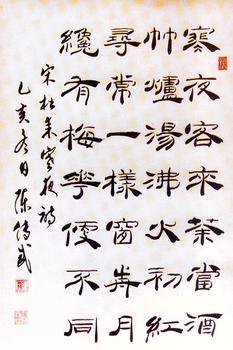 寒夜客來茶當酒
竹爐湯沸火初紅
尋常一樣窗前月
纔有梅花便不同
宋杜耒寒夜詩
乙亥冬日陳傳武